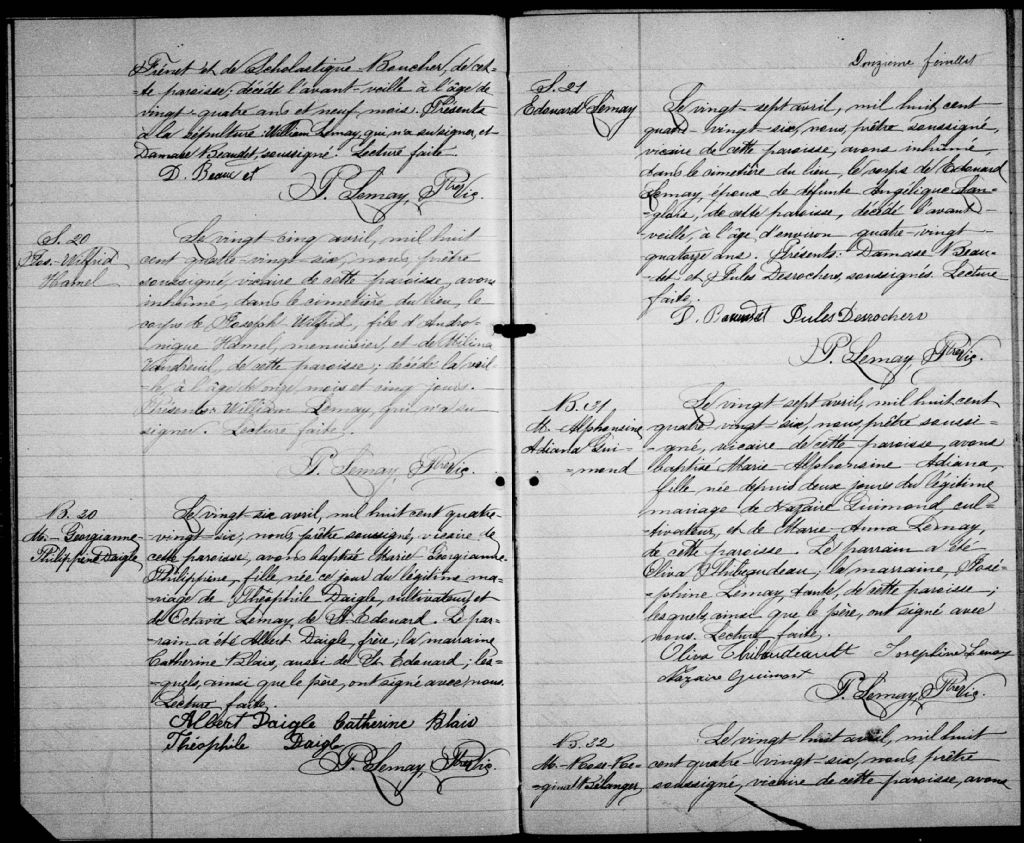 Frénet et de Scholastique Boucher, de cet-
te paroisse; décédé l'avant-veille à l'âge de
vingt-quatre ans et neuf mois. Présents
à la sépulture William Lemay, qui n'a su signer, et
Damase Beaudet, soussigné. Lecture faite.
D. Beaudet
P. Lemay, Ptre Vic.
S. 20
Jos.-Wilfrid
Hamel
Le vingt-cinq avril, mil huit
cent quatre-vingt-six, nous, prêtre
soussigné, vicaire de cette paroisse, avons
inhumé, dans le cimetière du lieu, le
corps de Joseph-Wilfrid, fils d'Andro-
nique Hamel, menuisier, et de Mélina
Vaudreuil, de cette paroisse; décédé la veil-
le, à l'âge de onze mois et cinq jours.
Présents William Lemay, qui n'a su
signer. Lecture faite.
P. Lemay, Ptre Vic.
B. 20
M.-Georgianne-
Philippine Daigle
Le vingt-six avril, mil huit cent quatre-
vingt-six, nous, prêtre soussigné, vicaire de
cette paroisse, avons baptisé Marie-Georgianne-
Philippine, fille née ce jour du légitime ma-
riage de Théophile Daigle, cultivateur, et
de Octavie Lemay, de St. Edouard. Le par-
rain a été Albert Daigle, frère; la marraine
Catherine Blais, aussi de St. Edouard; les-
quels, ainsi que le père, ont signé avec nous.
Lecture faite.
Albert Daigle Catherine Blais
Théophile Daigle
P. Lemay, Ptre Vic.
Onzième feuillet
S. 21
Edouard Lemay
Le vingt-sept avril, mil huit cent
quatre-vingt-six, nous, prêtre soussigné,
vicaire de cette paroisse, avons inhumé,
dans le cimetière du lieu, le corps de Edouard
Lemay, époux de défunte Angélique Lan-
glois, de cette paroisse, décédé l'avant-
veille, à l'âge d'environ quatre-vingt-
quatorze ans. Présents: Damase Beau-
det et Jules Desrochers, soussignés. Lecture
faite.
D. Beaudet Jules Desrochers
P. Lemay Ptre Vic.
B. 31
M.-Alphonsine
Adiana Gui-
mond
Le vingt-sept avril, mil huit cent
quatre vingt-six, nous, prêtre soussi-
gné, vicaire de cette paroisse, avons
baptisé Marie-Alphonsine-Adiana,
fille née depuis deux jours du légitime
mariage de Nazaire Guimond, cul-
tivateur, et de Marie-Anna Lemay,
de cette paroisse. Le parrain a été
Oliva Thibaudeau; la marraine, José-
phine Lemay, tante, de cette paroisse;
lesquels, ainsi que le père, ont signé avec
nous. Lecture faite.
Oliva Thibaudeault Josephine Lemay
Nazaire Guimont
P. Lemay, Ptre Vic.
B. 32
M.-Rose-Re-
gina Bélanger
Le vingt-huit avril, mil huit
cent quatre-vingt-six, nous, prêtre
soussigné, vicaire de cette paroisse, avons